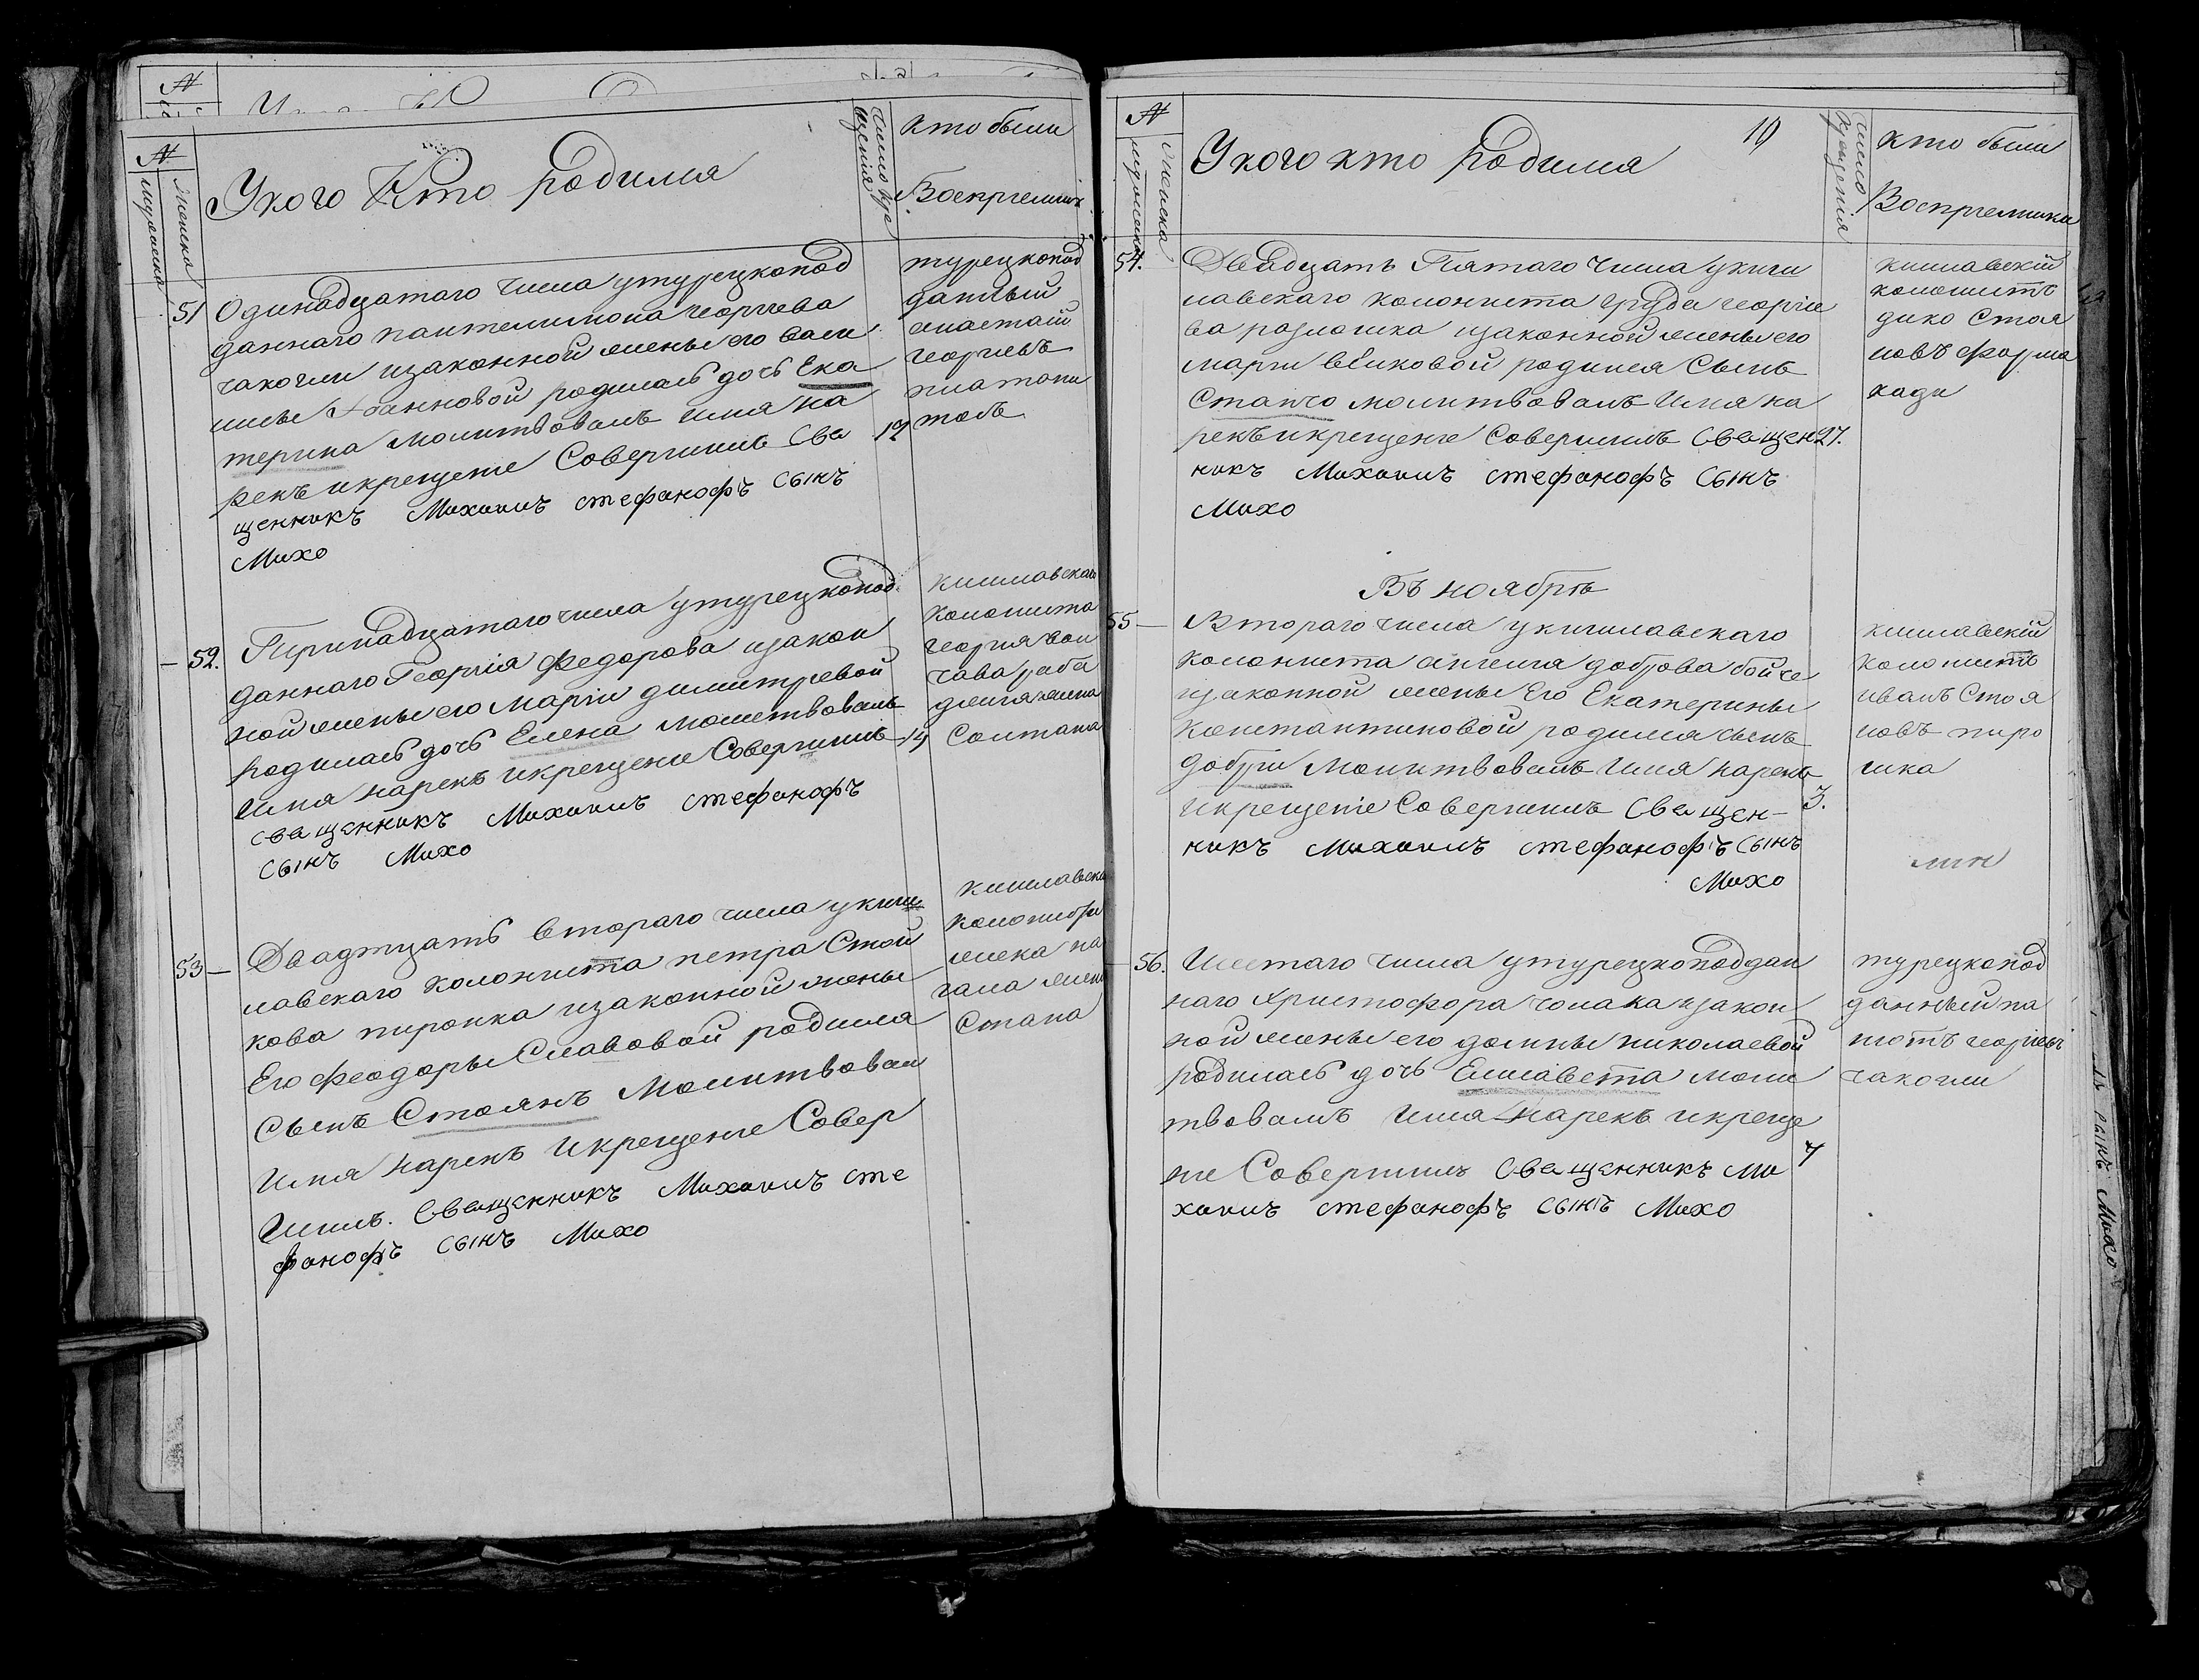 №
мужеска
женска
У кого Кто родился
число кре
щения
кто были
Восприемник
51
Одинадцатаго числа утурецкопод
даннаго пантелимона георгева
чакогли изаконной жены его Васи
лисы Іоанновой родилась дочь Ека
терина молитвовалъ имя на
рекъ икрещение Совершилъ Сва
щенникъ Михаилъ стефанофъ Сынъ
Михо
12
турецкопод
датный
анастасій
георгиевъ
52.
Тиринадцатаго числа утурецкопод
даннаго Георгія Федорова изакон
ной жены его Маріи димитревой
родилась дочь Елена молитвовалъ
имя нарекъ икрещение Совершилъ
Сващенникъ Михаилъ стефанофъ
Сынъ Михо
14
кишлавскаго
колониста
георгия вол
чава раба
жена
Солтана
53
Двадтцать втораго числа укиш
лавскаго колониста петра Стой
кова пиронка изаконной жены
Его Феодоры Славовой родился
Сынъ Стоянъ Молитвовал
Имя нарекъ Икрещение Совер
шилъ. Сващенникъ Михаилъ сте
фанофъ Сынъ Михо
кишлавски
жека
Стана
№
мужеска
женска
У кого кто родился
19
число
крещения
кто были
Восприемники
54.
Двадцать Пятаго числа укиш
лавскаго колониста груди георгіе
ва разложка изаконной жены его
марги великовой родился Сынъ
Станчо молитвовалъ Имя на
рекъ икрещение Совершилъ Сващен
никъ Михаилъ стефанофъ Сынъ
Михо
27.
кишлавскій
колонистъ
дико Стоя
новъ Фарма
кади
Въ ноябрѣ
55
Втораго числа укишлавскаго
колониста ангелия доброва бойче
изаконной жены Его Екатерины
константиновой родился сынъ
добри молитвовалъ Имя нарекъ
икрещение Совершилъ Сващен-
никъ Михаилъ стефанофъ Сынъ
Михо
3.
кишлавскій
колонистъ
иванъ Стоя
новъ пиро
шка
56.
Шестаго числа утурецкоподдан
наго Христофора чолака изакон
ной жены его домны николаевой
родилась дочь Елисавета моли
твовалъ имя нарекъ икреще
ние Совершилъ Сващенникъ Ми
хаилъ стефанофъ Сынъ Михо
7
турецкопод
данный па
нютъ георгіевъ
чакогли
Сынъ Михо